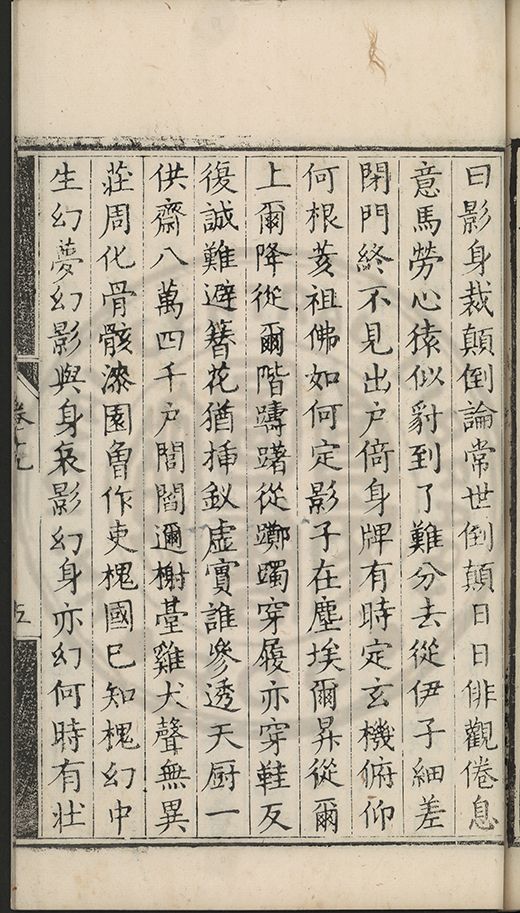 曰影身裁顛倒論常世倒顛日日俳觀倦息
意馬勞心猿似豺到了難分去從伊子細差
閉門終不見出户倚身牌有時定玄機俯仰
何根荄祖佛如何定影子在塵埃爾昇從爾
上爾降從爾階躊躇從躑躅穿履亦穿鞋反
復誠難避簪花猶揷釵虛實誰參透天厨一
供齋八萬四千户閭閻邇榭臺雞犬聲無異
莊周化骨骸漆園曾作吏槐國已知槐幻中
生幻夢幻影與身哀影幻身亦幻何時有壯
卷十九
五